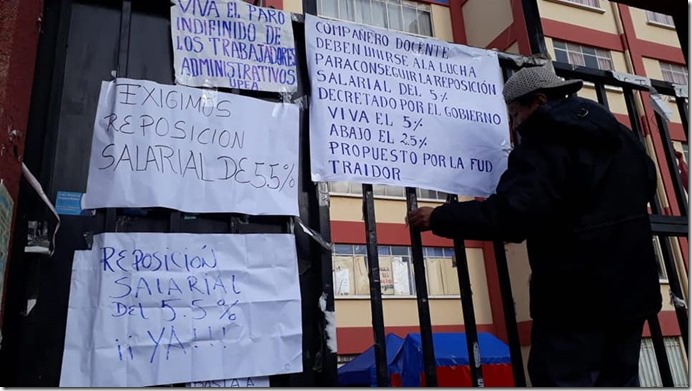 VIVA EL PARO
INDIFINIDO DE
DE LOS TRABAJADORES
ADMINISTRATIVOS
UPEA
EXIGIMOS
REPOSICION
SALARIAL DE 5.5%
REPOSICIÓN
SALARIAL
DEL 5.5%
¡¡ YA !!!
HASTA A
COMPAÑERO DOCENTE
DEBEN UNIRSE A LA LUCHA
PARA CONSEGUIR LA REPOSICIÓN
SALARIAL DEL 5%
DECRETADO POR EL GOBIERNO
VIVA EL 5%
ABAJO EL 2.5%
PROPUESTO POR LA FUD
TRAIDOR